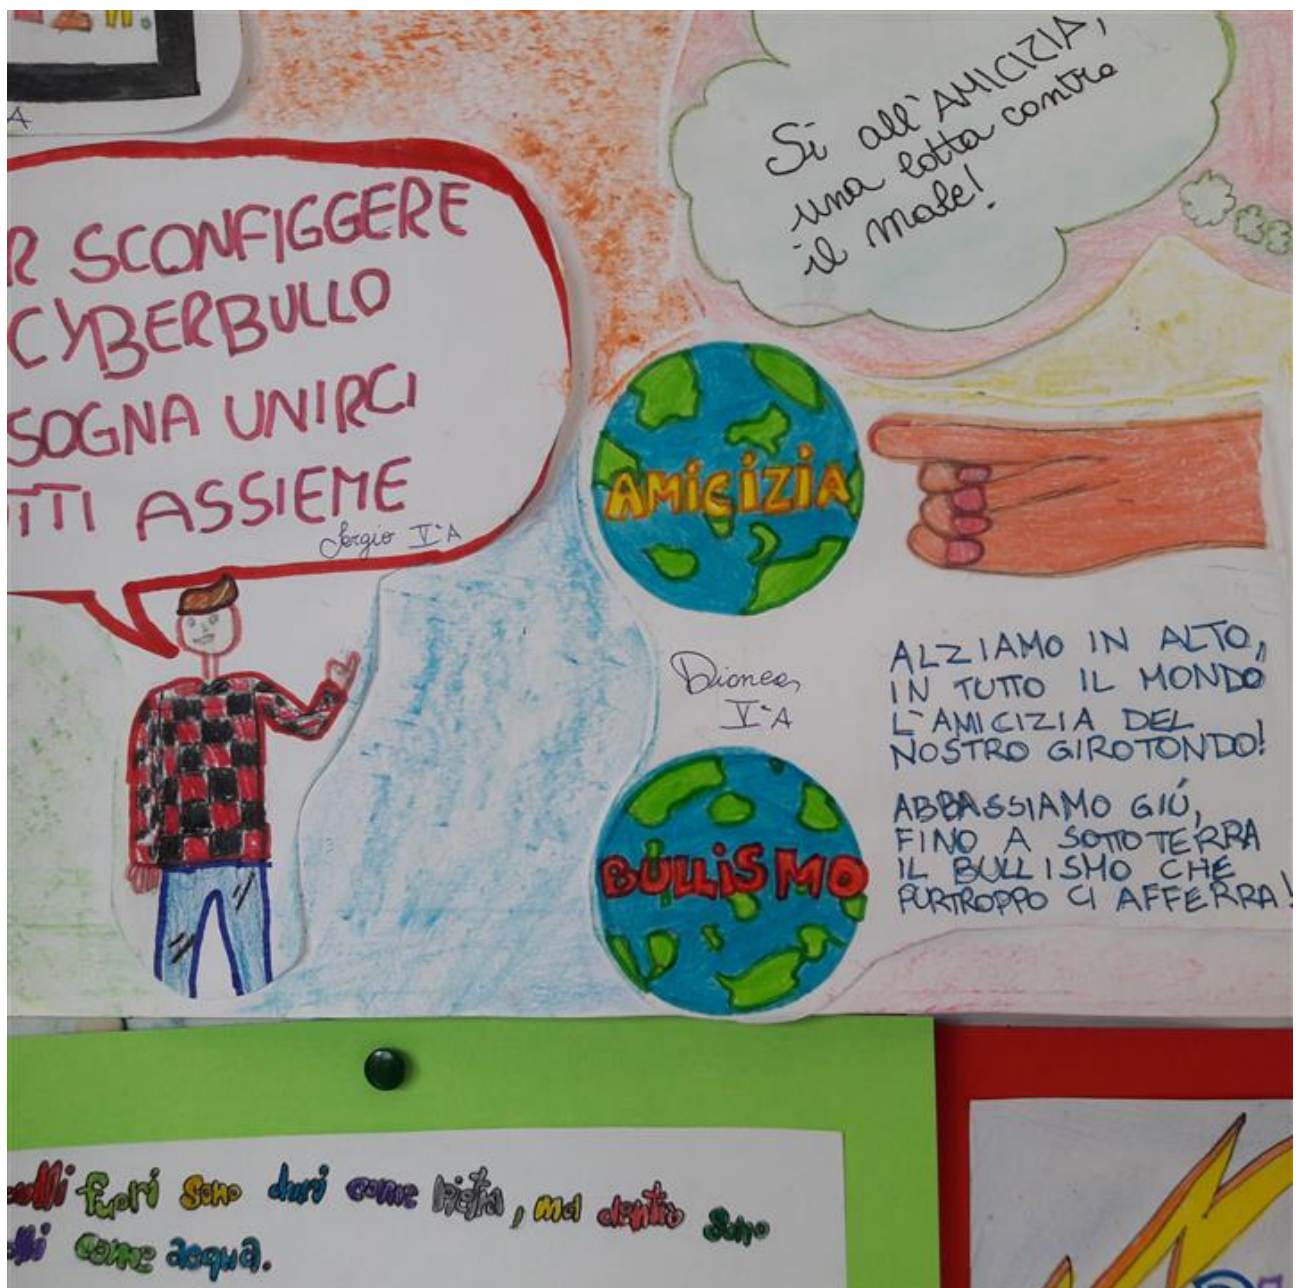 A
R SCONFIGGERE
CYBERBULLO
SOGNA UNIRCI
TTI ASSIEME
Sergio V^A
Si all'AMICIZIA,
una lotta contro
il male!
AMICIZIA
Dionea
V^A
ALZIAMO IN ALTO,
IN TUTTO IL MONDO
L'AMICIZIA DEL
NOSTRO GIROTONDO!
ABBASSIAMO GIÚ,
FINO A SOTTOTERRA
IL BULLISMO CHE
PURTROPPO CI AFFERRA!
BULLISMO
fuori sono duri come pietra, ma dentro sono
come acqua.